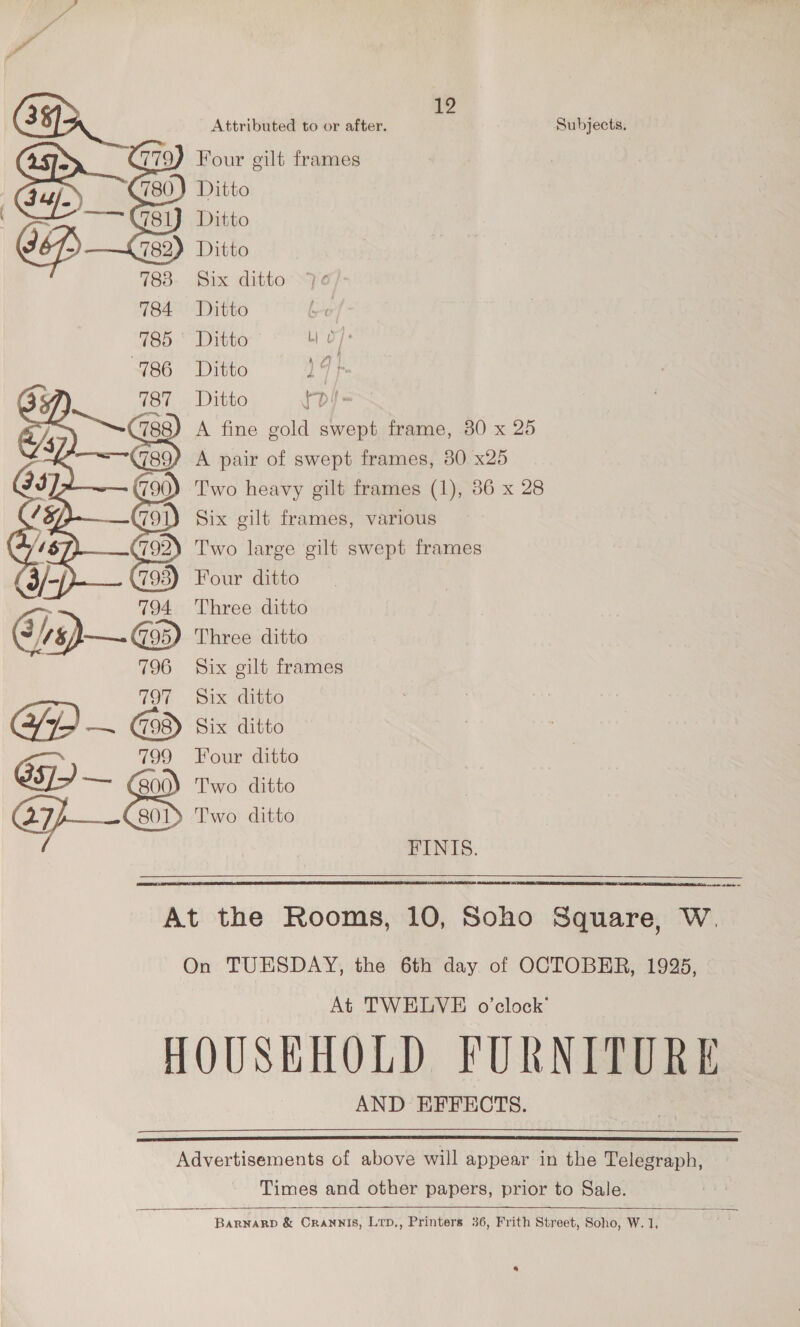 12
Attributed to or after. Subjects.
38/-
25/- 779 Four gilt frames
34/- 780 Ditto
781 Ditto
36/- 782 Ditto
783 Six ditto
784 Ditto
785 Ditto 40/-
786 Ditto
787 Ditto
788 A fine gold swept frame, 30 x 25
789 A pair of swept frames, 30 x25
790 Two heavy gilt frames (1), 36 x 28
791 Six gilt frames, various
792 Two large gilt swept frames
793 Four ditto
794 Three ditto
795 Three ditto
796 Six gilt frames
797 Six ditto
798 Six ditto
799 Four ditto
800 Two ditto
27/- 801 Two ditto
FINIS.
At the Rooms, 10, Soho Square, W.
On TUESDAY, the 6th day of OCTOBER, 1925,
At TWELVE o'clock'
HOUSEHOLD FURNITURE
AND EFFECTS.
Advertisements of above will appear in the Telegraph,
Times and other papers, prior to Sale.
BARNARD & CRANNIS, LTD., Printers 36, Frith Street, Soho, W. 1.